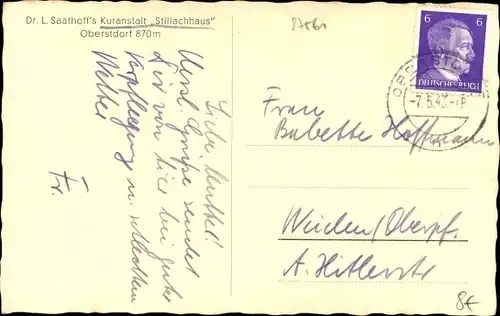 Dr. L. Saathoff's Kuranstalt „Stillachhaus"
Oberstdorf 870m
Liebe Mutter!
Viele Grüße sendet
Dir von hier bei guter
Verpflegung u. schlechtem
Wetter
Fr.
6 6
DEUTSCHES REICH
OBERSTDORF
-7.5.43.
Frau
Babette Hoffmann
Weiden/Oberpf.
A. Hitlerstr
8€